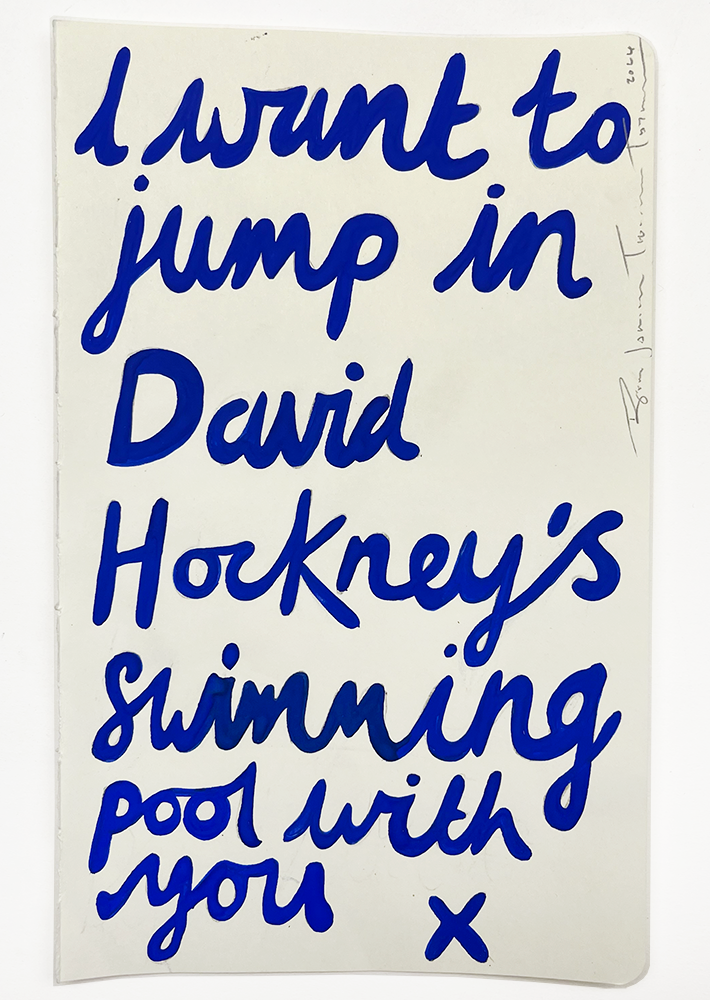 I want to
jump in
David
Hockney's
swimming
pool with
you x
2024